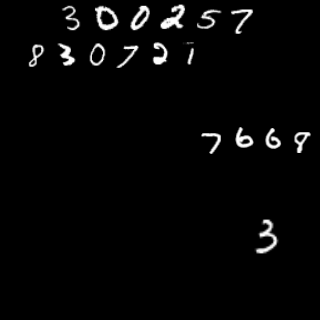 300257
830721
7668
3